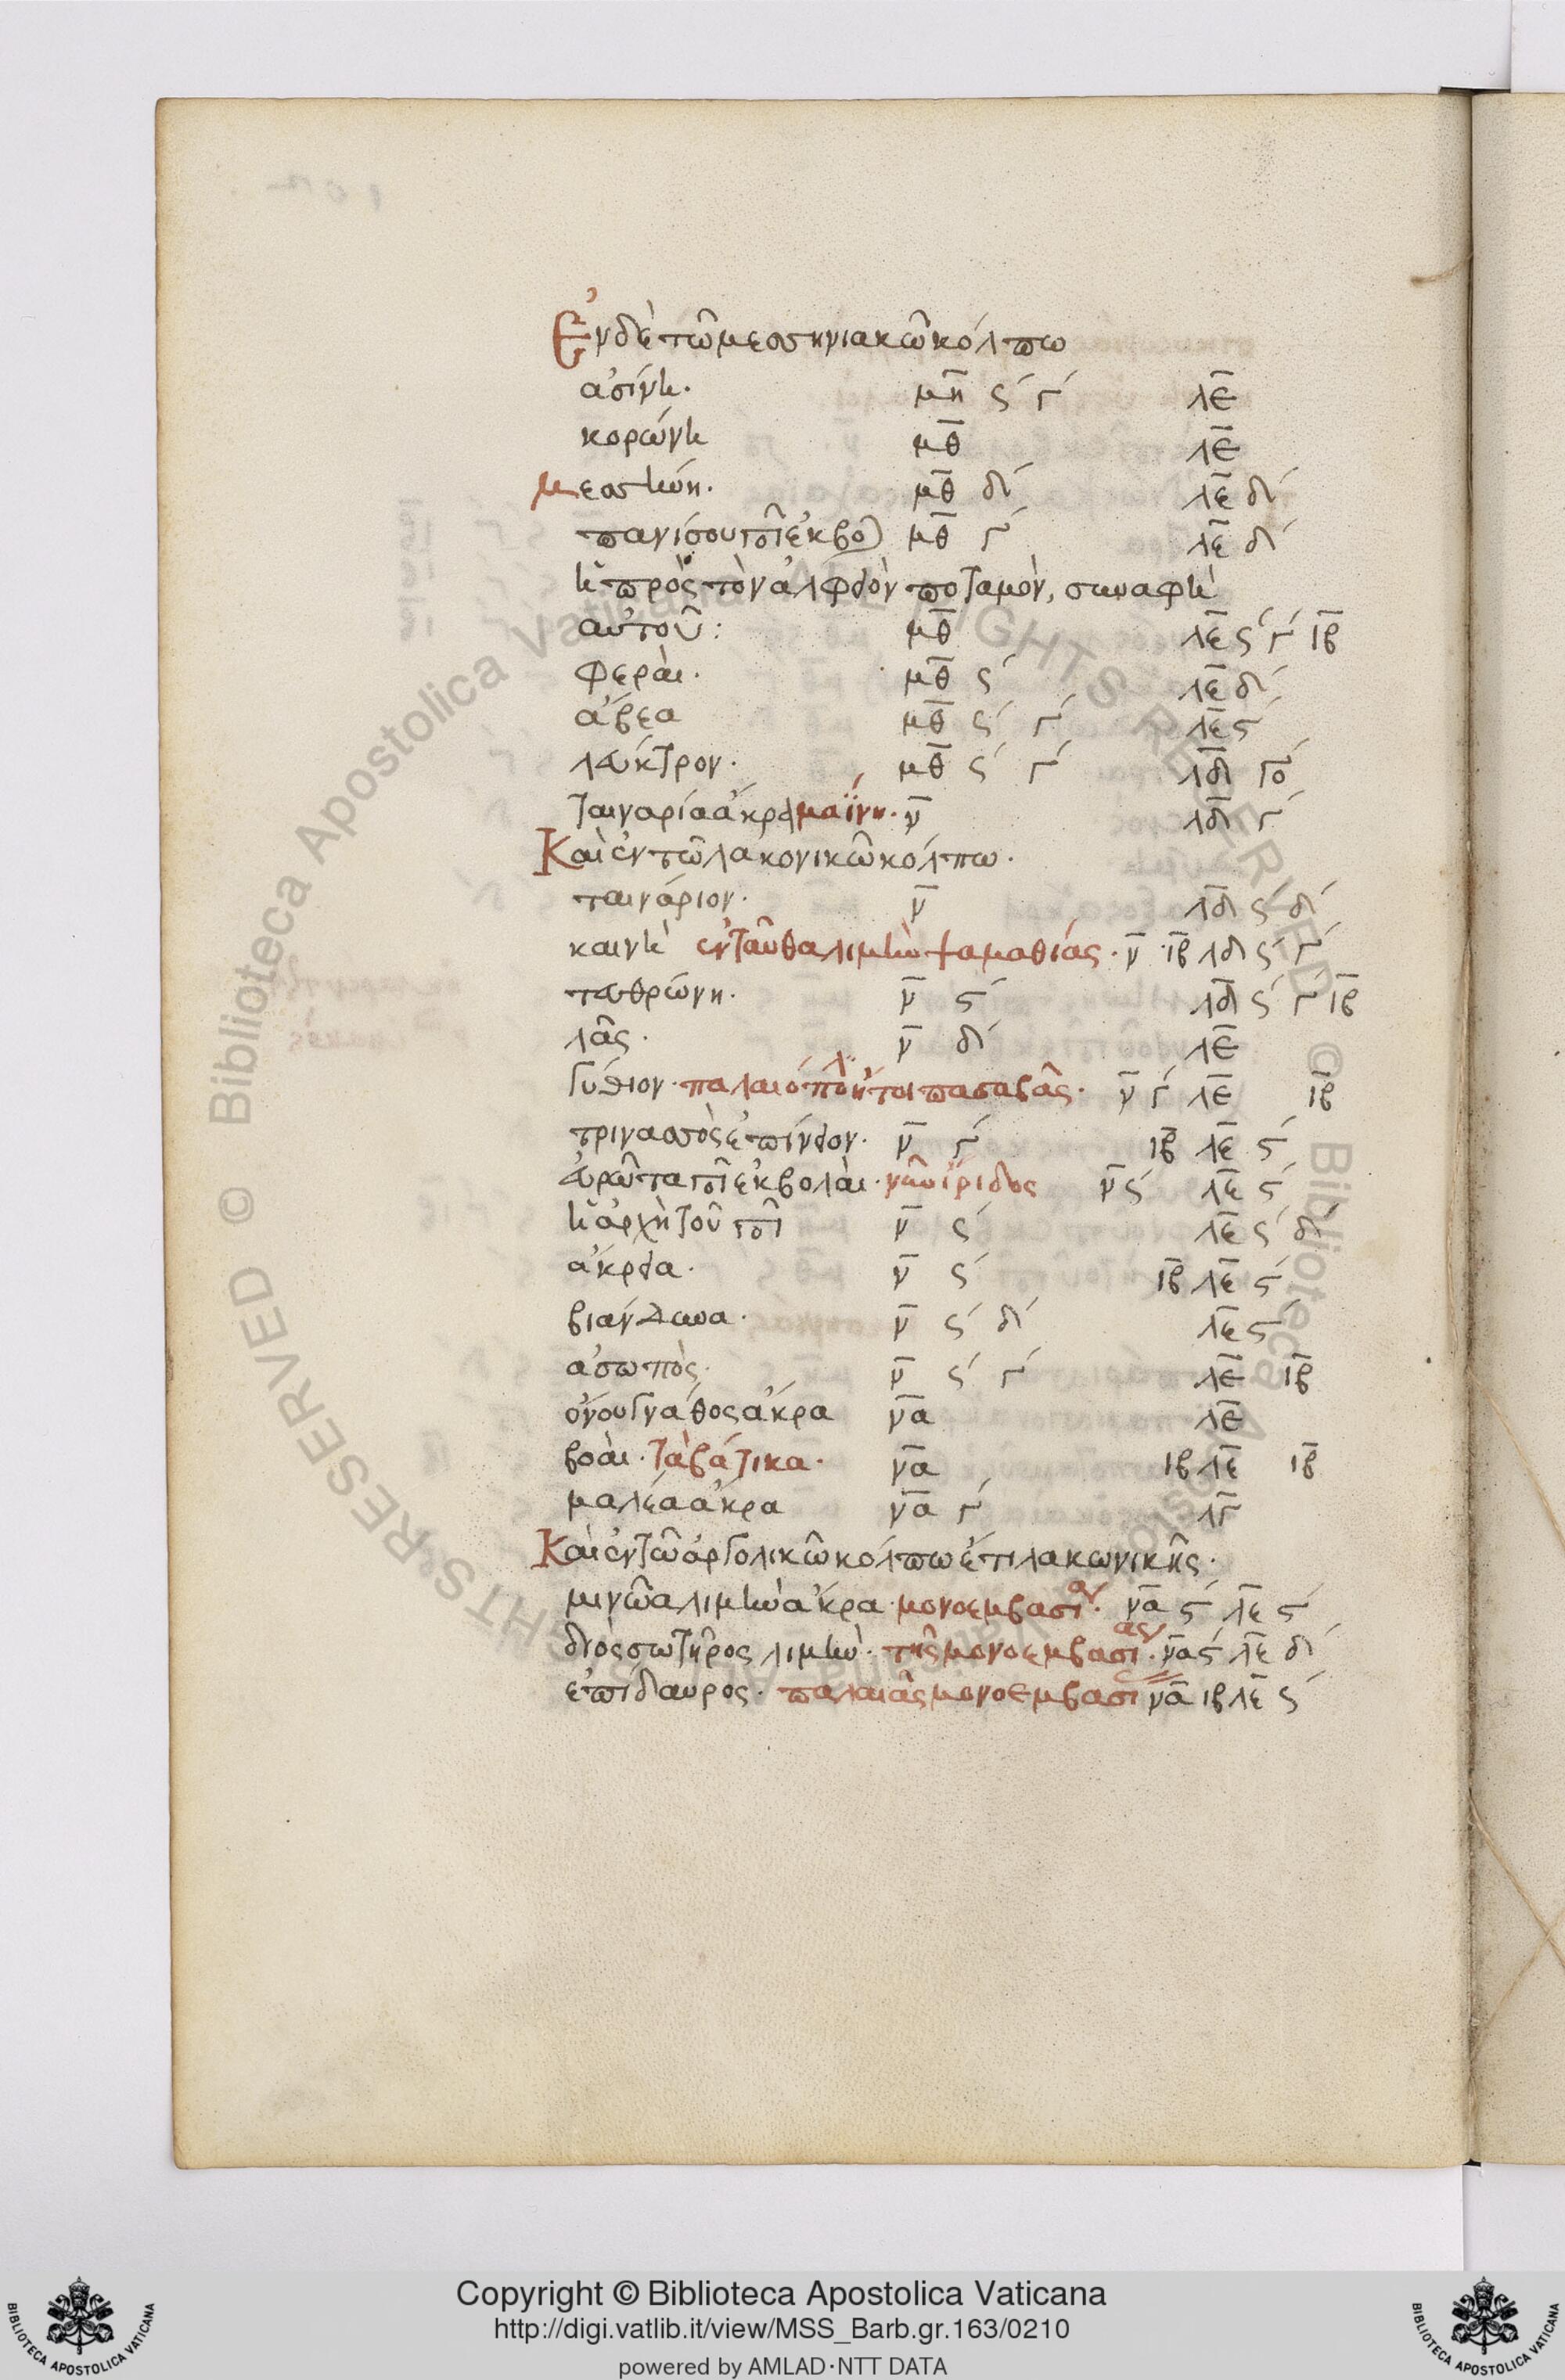 Ἐν δὲ τῶ μεσηνιακῶ κόλπω
ἀσίνη. μη ς΄ γ΄ λε
κορώνη μθ λε
μεσήνη. μθ δ΄ λε δ΄
πανίσου ποτ ἐκβο μθ γ΄ λε δ΄
ἡ πρὸς τὸν ἀλφειὸν ποταμὸν, συναφὴ
αὐτοῦ: μθ λε ς΄ γ΄ ιβ
φεραὶ. μθ ς΄ λε δ΄
ἄβεα μθ ς΄ γ΄ λε ς΄
λεῦκτρον. μθ ς΄ γ΄ λδ γο΄
ταιναρία ἄκρα μαΐνη. ν λδ γ΄
Καὶ ἐν τῶ λακονικῶ κόλπω.
ταινάριον. ν λδ ς΄ δ΄
καινὴ ἐνταῦθα λιμὴν ψαμαθίας. ν ιβ λδ ς΄ γ΄
τευθρώνη. ν ς΄ λδ ς΄ γ΄ ιβ
λᾶς. ν δ΄ λε
Γύθιον. παλαιόπολ ἤτοι πασαβᾶς. ν γ΄ λε ιβ
τρινασὸς ἐπίνειον. ν γ΄ ιβ λε ς΄
εὐρῶτα ποτ ἐκβολαὶ. ν ς΄ λε ς΄
ἡ ἀρχὴ τοῦ ποτ ν ς΄ λε ς΄ δ΄
ἄκρεια. ν ς΄ ιβ λε ς΄
βιάνδυνα. ν ς΄ δ΄ λε ς΄
ἀσωπὸς. ν ς΄ γ΄ λε ιβ
ὄνου Γνάθος ἄκρα να λε
βοαὶ. τὰ βάτικα. να ιβ λε ιβ
μαλέα ἄκρα να γ΄ λε
Καὶ ἐν τῶ ἀργολικῶ κόλπω ἔτι λακωνικῆς.
μινῶα λιμὴν ἄκρα. μονοεμβασι. να ς΄ λε ς΄
διὸς σωτῆρος λιμὴν. τῆς μονοεμβασίας. να ς΄ λε δ΄
ἐπίδαυρος. παλαιᾶς μονοεμβασι να ιβ λε ς΄
Copyright © Biblioteca Apostolica Vaticana
http://digi.vatlib.it/view/MSS_Barb.gr.163/0210
powered by AMLAD·NTT DATA